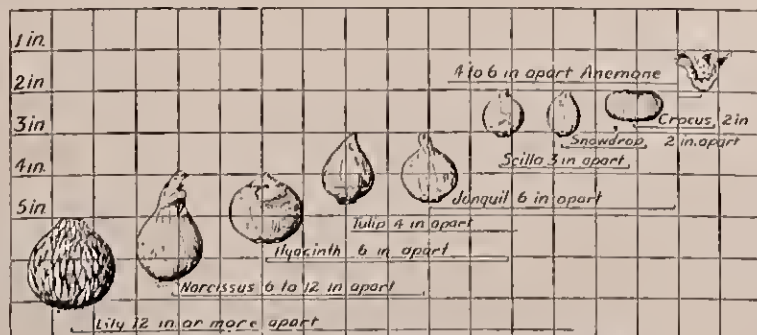 1 in.
2 in.
4 to 6 in apart Anemone
3 in.
Crocus, 2 in
Snowdrop 2 in. apart
Scilla 3 in apart
4 in.
Jonquil 6 in apart
5 in.
Tulip 4 in apart
Hyacinth 6 in apart
Narcissus 6 to 12 in apart
Lily 12 in or more apart